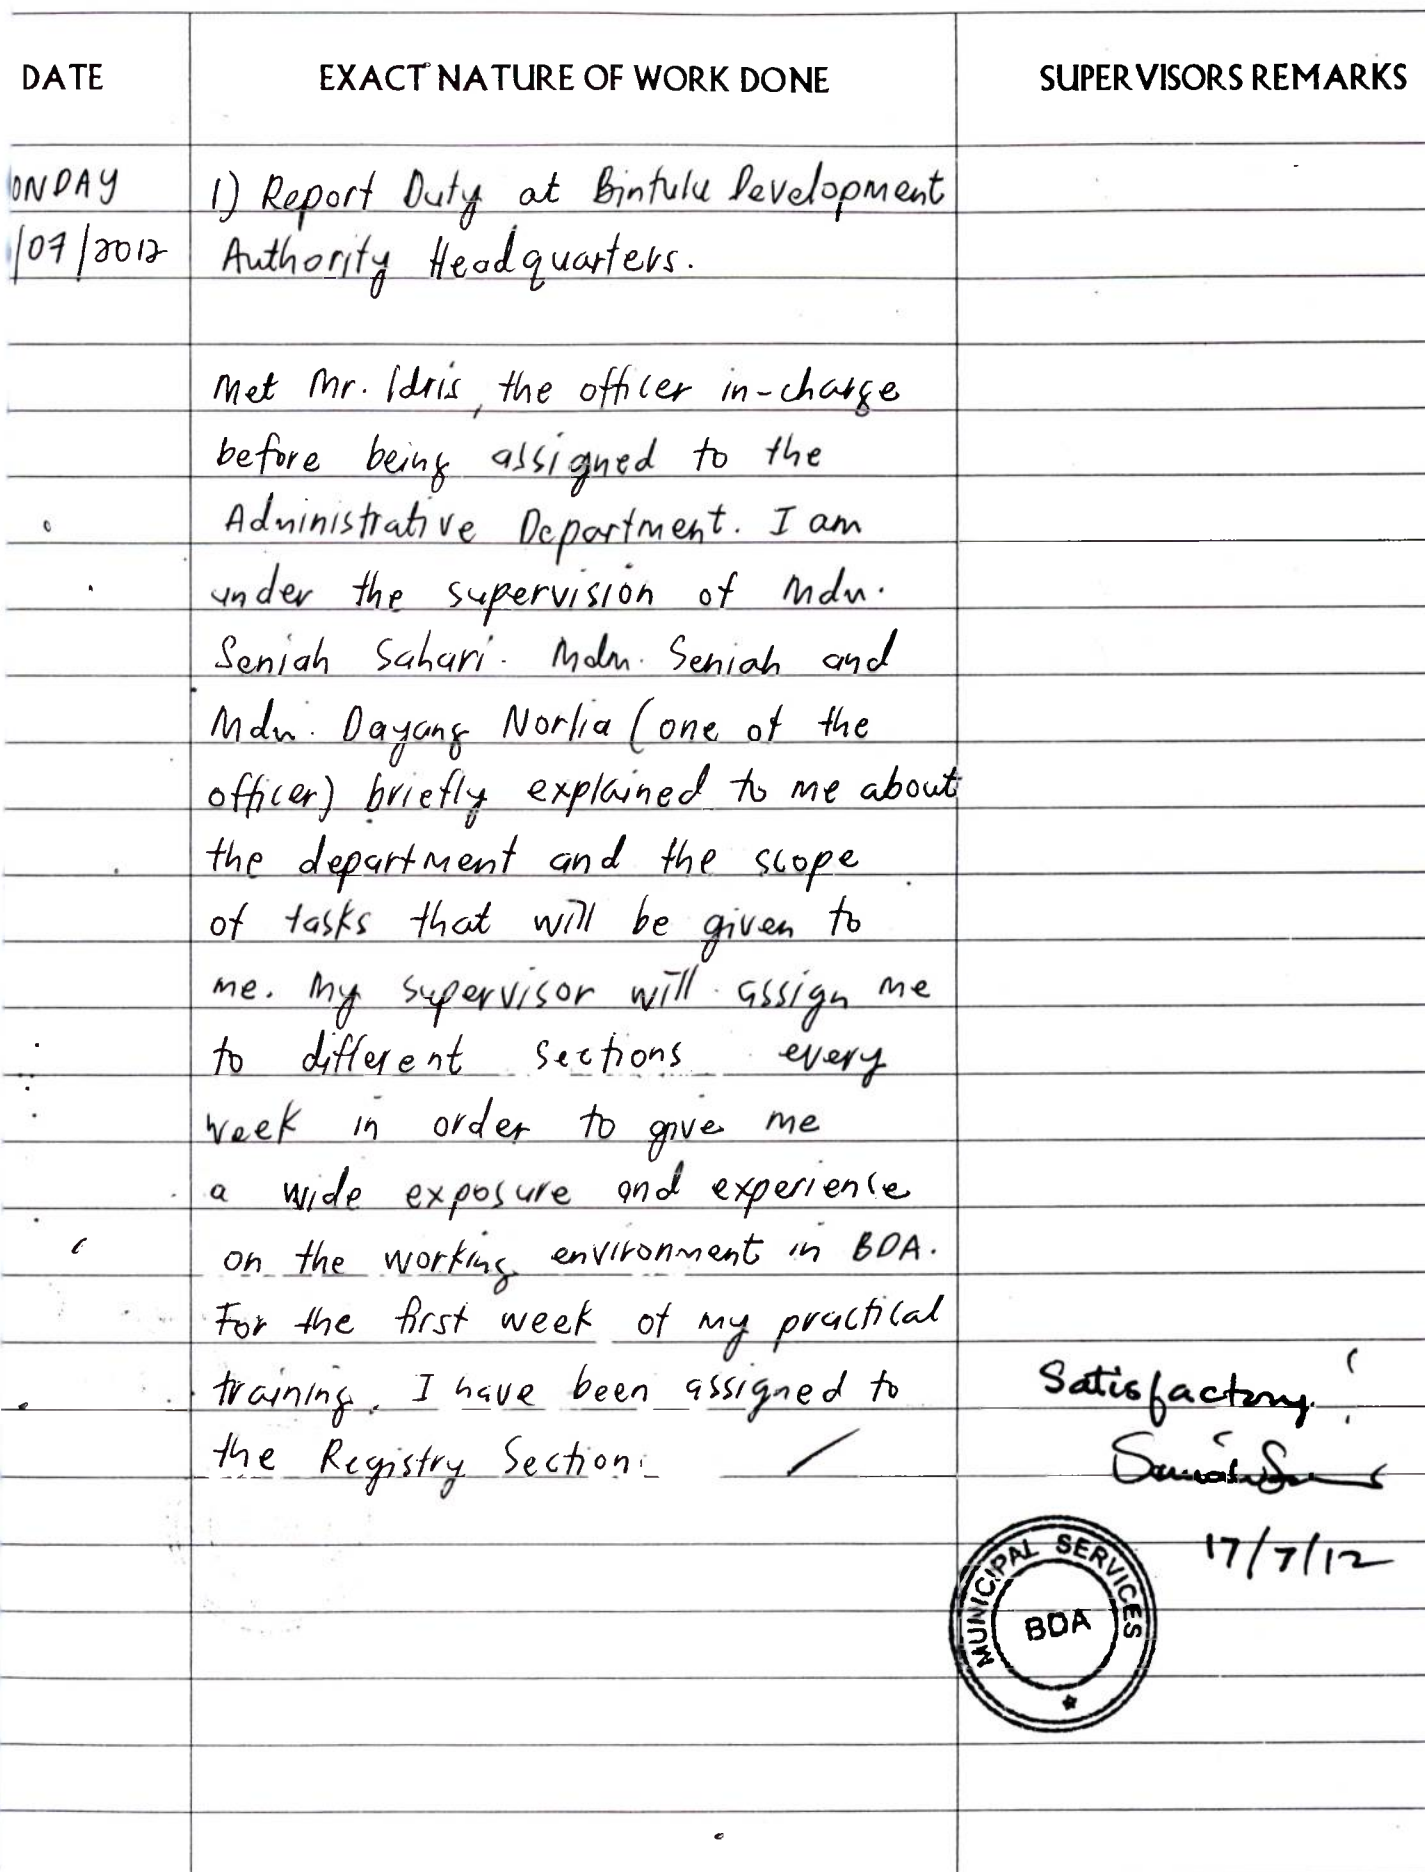 DATE EXACT NATURE OF WORK DONE SUPERVISORS REMARKS
ONDAY 1) Report Duty at Bintulu Development
/07/2012 Authority Headquarters.
Met Mr. Idris, the officer in-charge
before being assigned to the
Administrative Department. I am
under the supervision of Mdm.
Seniah Sahari. Mdm. Seniah and
Mdm. Dayang Norlia (one of the
officer) briefly explained to me about
the department and the scope
of tasks that will be given to
me. My supervisor will assign me
to different sections every
week in order to give me
a wide exposure and experience
on the working environment in BDA.
For the first week of my practical
training, I have been assigned to
the Registry Section.
Satisfactory
17/7/12
MUNICIPAL SERVICES
BDA